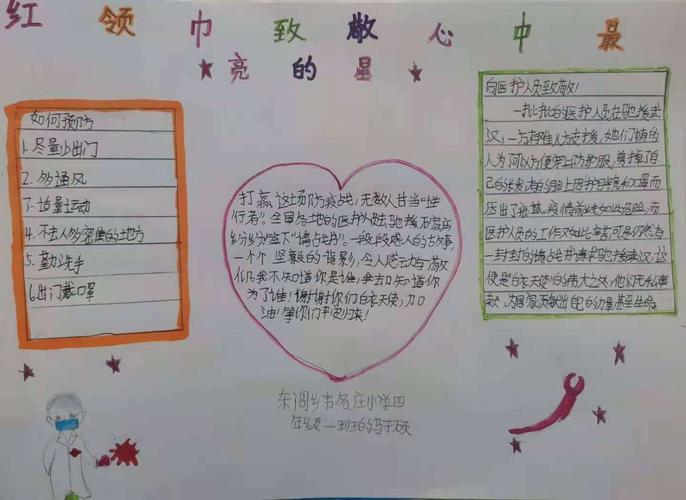 红领巾致敬心中最
亮的星
如何预防
1.尽量少出门
2.多通风
3.适量运动
4.不去人多密集的地方
5.勤洗手
6.出门戴口罩
打赢这场防疫战，无数人甘当“逆
行者”。全国各地的医护
纷纷签下“请战书”。一段段感人的故事，
一个个坚毅的背影，令人感动与敬
你我不知道你是谁，我知道你
为了谁！谢谢你们白衣天使，加
油！等你们平安归来！
向医护人员致敬！
一批批的医护人员在驰援武
汉，一方有难八方支援，她们有的
人为了可以方便穿上防护服，剪掉了自
而
医护人员的工作如此辛苦可是仍然有
一封封的请战书请求驰援武汉，这
便是“白衣天使”的伟大之处，他们无私奉
献，为国家贡献出自己的力量甚至生命
东闾乡
小学四
年级一班